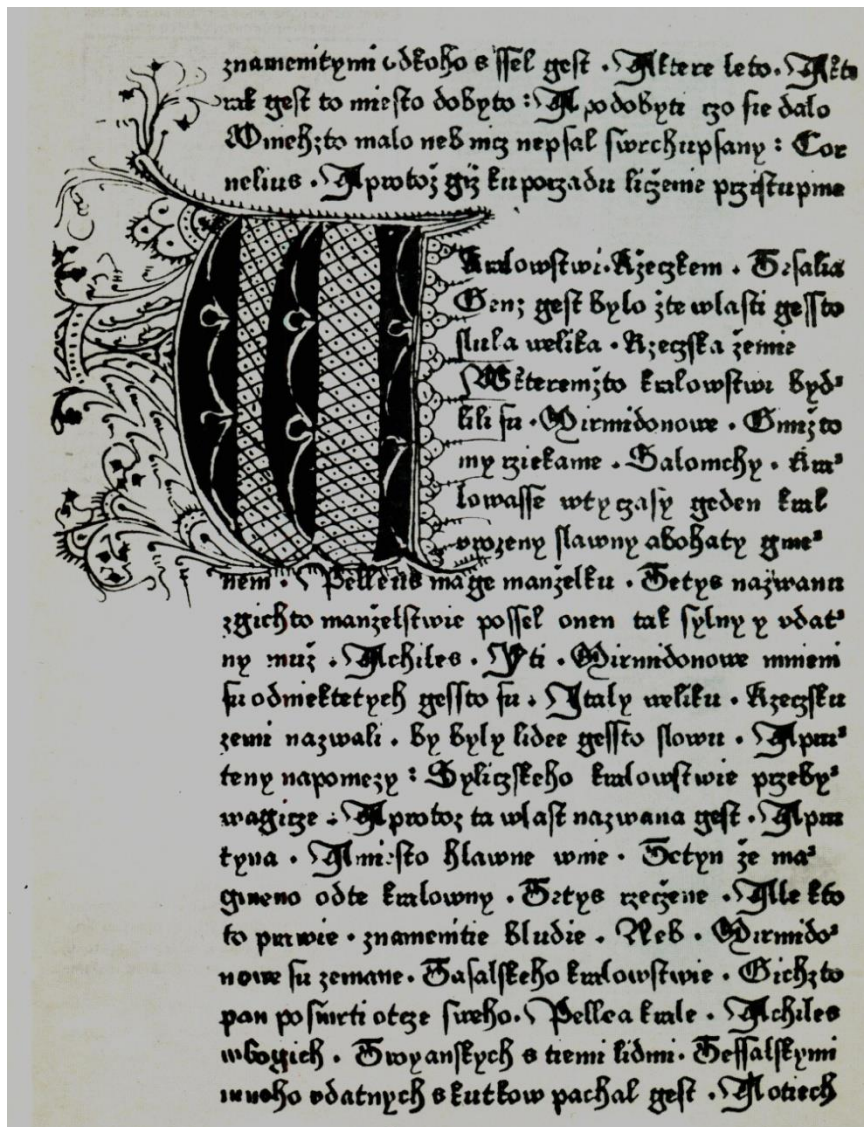 znamenitymi odkoho s ssel gest . Aktere leto . Akte
rak gest to miesto dobyto : A po dobyti czo sie dalo
Omehzto malo neb nicz nepsal swrchupsany : Cor
nelius . Aprotoz giz kuporzadu liczenie przistupme
Kralowstwi . Rzeczkem . Tesalia
Genz gest bylo zte wlasti gessto
slula welika . Rzeczska zemie
Wkteremzto kralowstwi byd⸗
lili su . Mirmidonowe . Gimizto
my rziekame . Salomchy . Kra⸗
lowasse wty czasy geden kral
urozeny slawny abohaty gme⸗
nem . Pelleus mage manzelku . Tetys nazwanu
zgichto manzelstwie possel onen tak sylny y vdat⸗
ny muz . Achiles . Yti . Mirmidonowe mnieni
su odniektetych gessto su . Italy weliku . Rzeczsku
zemi nazwali . by byly lidee gessto slowu . Apru⸗
teny napomezy : Syliczskeho kralowstwie przeby⸗
wagicze . Aprotoz ta wlast nazwana gest . Apru
tyna . Amiesto hlawne wnie . Tetyn ze ma⸗
gmeno odte kralowny . Tetys rzeczene . Alle kto
to prawie . znamenitie bludie . Neb . Mirmido⸗
nowe su zemane . Tasalskeho kralowstwie . Gichzto
pan po smrti otcze sweho . Pellea krale . Achiles
wbogich . Troyanskych s tiemi lidmi . Tessalskymi
mnoho vdatnych skutkow pachal gest . Aotiech